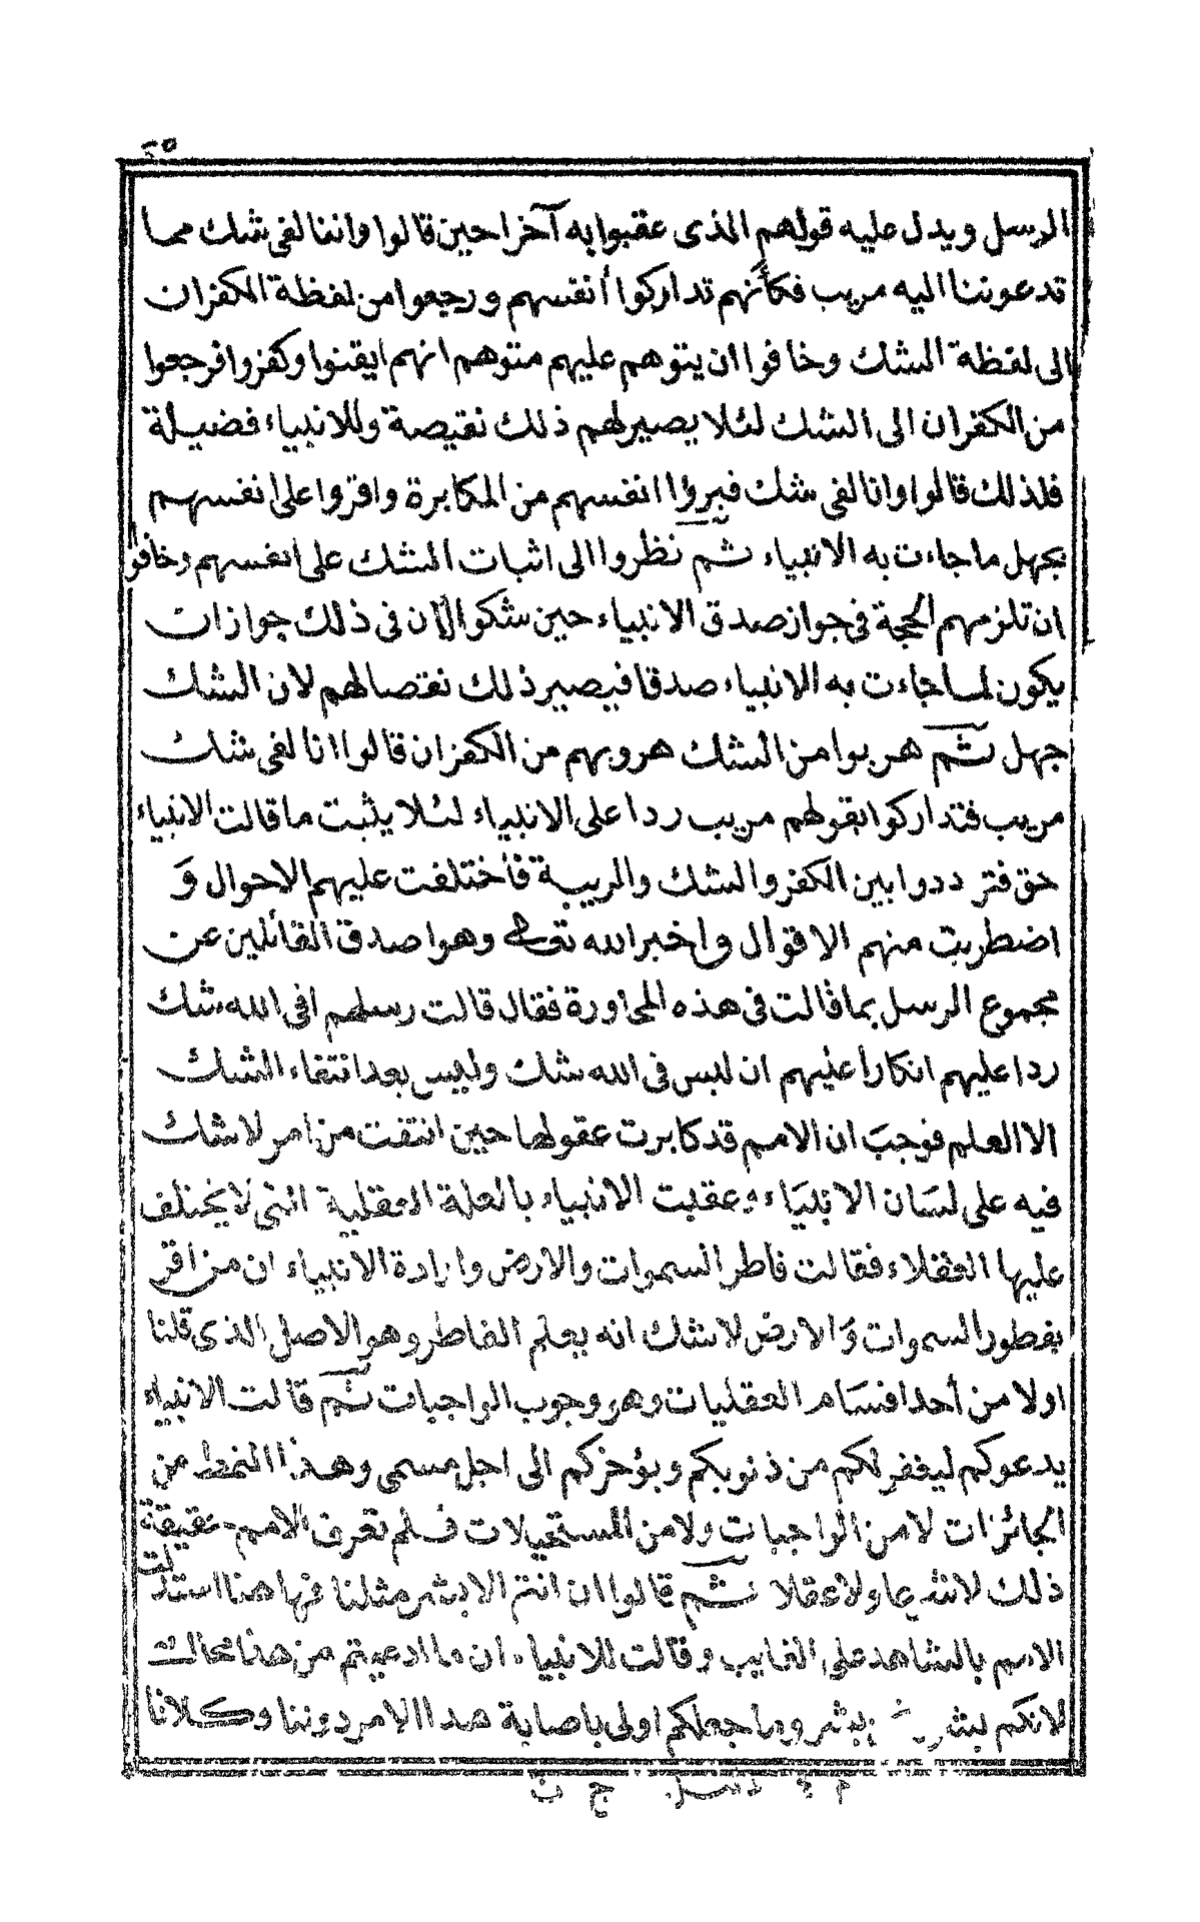 ٢٥
الرسل ويدل عليه قولهم الذى عقبوا به آخرا حين قالوا واننا لفى شك مما
تدعوننا اليه مريب فكأنهم تداركوا أنفسهم ورجعوا من لفظة الكفران
الى لفظة الشك وخافوا ان يتوهم عليهم متوهم انهم ايقنوا وكفروا فرجعوا
من الكفران الى الشك لئلا يصير لهم ذلك نقيصة وللانبياء فضيلة
فلذلك قالوا وانا لفى شك فبرؤا انفسهم من المكابرة واقروا على انفسهم
بجهل ما جاءت به الانبياء ثم نظروا الى اثبات الشك على انفسهم وخافوا
ان تلزمهم الحجة فى جواز صدق الانبياء حين شكوا لان فى ذلك جواز ان
يكون لما جاءت به الانبياء صدقا فيصير ذلك نقصا لهم لان الشك
جهل ثم هربوا من الشك هروبهم من الكفران قالوا انا لفى شك
مريب فتداركوا بقولهم مريب ردا على الانبياء لئلا يثبت ما قالت الانبياء
حق فترددوا بين الكفر والشك والريبة فأختلفت عليهم الاحوال وَ
اضطربت منهم الاقوال واخبر الله تعالى وهو اصدق القائلين عن
مجموع الرسل بما قالت فى هذه المحاورة فقال قالت رسلهم افى الله شك
ردا عليهم انكارا عليهم ان ليس فى الله شك وليس بعد انتفاء الشك
الا العلم فوجبَ ان الامم قد كابرت عقولها حين انتفت من امر لا شك
فيه على لسَان الانبيَاء وعقبت الانبياء بالعلة العقلية التى لا يختلف
عليها العقلاء فقالت فاطر السموات والارض وارادة الانبياء ان من اقر
بفطور السموات وَالارض لا شك انه يعلم الفاطر وهو الاصل الذى قلنا
اولا من أحد اقسَام العقليات وهو وجوب الواجبات ثم قالت الانبياء
يدعوكم ليغفر لكم من ذنوبكم ويؤخركم الى اجل مسمى وهذا النمط من
الجائزات لا من الواجبات ولا من المستحيلات فلم تعرف الامم حقيقة
ذلك لا شرعا ولا عقلا ثم قالوا ان انتم الا بشر مثلنا فها هنا استدلت
الامم بالشاهد على الغايب وقالت للانبياء ان ما ادعيتم من هذا محال
لانكم بشر بشر وما جعلكم اولى باصابة هذا الامر دوننا وكلانا